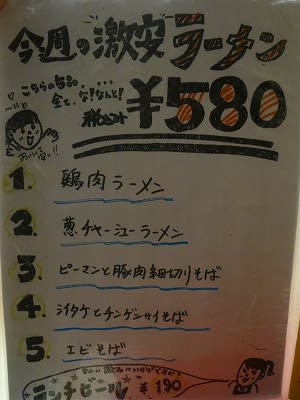 今週の激安ラーメン
こちらの5品
全て、な!なんと!
税込コミ
¥580
おいしぃ!!
1. 鶏肉ラーメン
2. 葱チャーシューラーメン
3. ピーマンと豚肉細切りそば
4. シイタケとチンゲンサイそば
5. エビそば
ランチビール ¥190